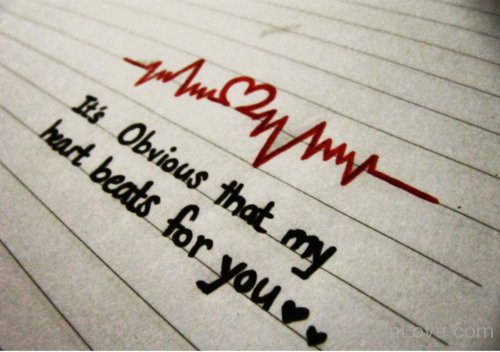 It's Obvious that my
heart beats for you
Love.com